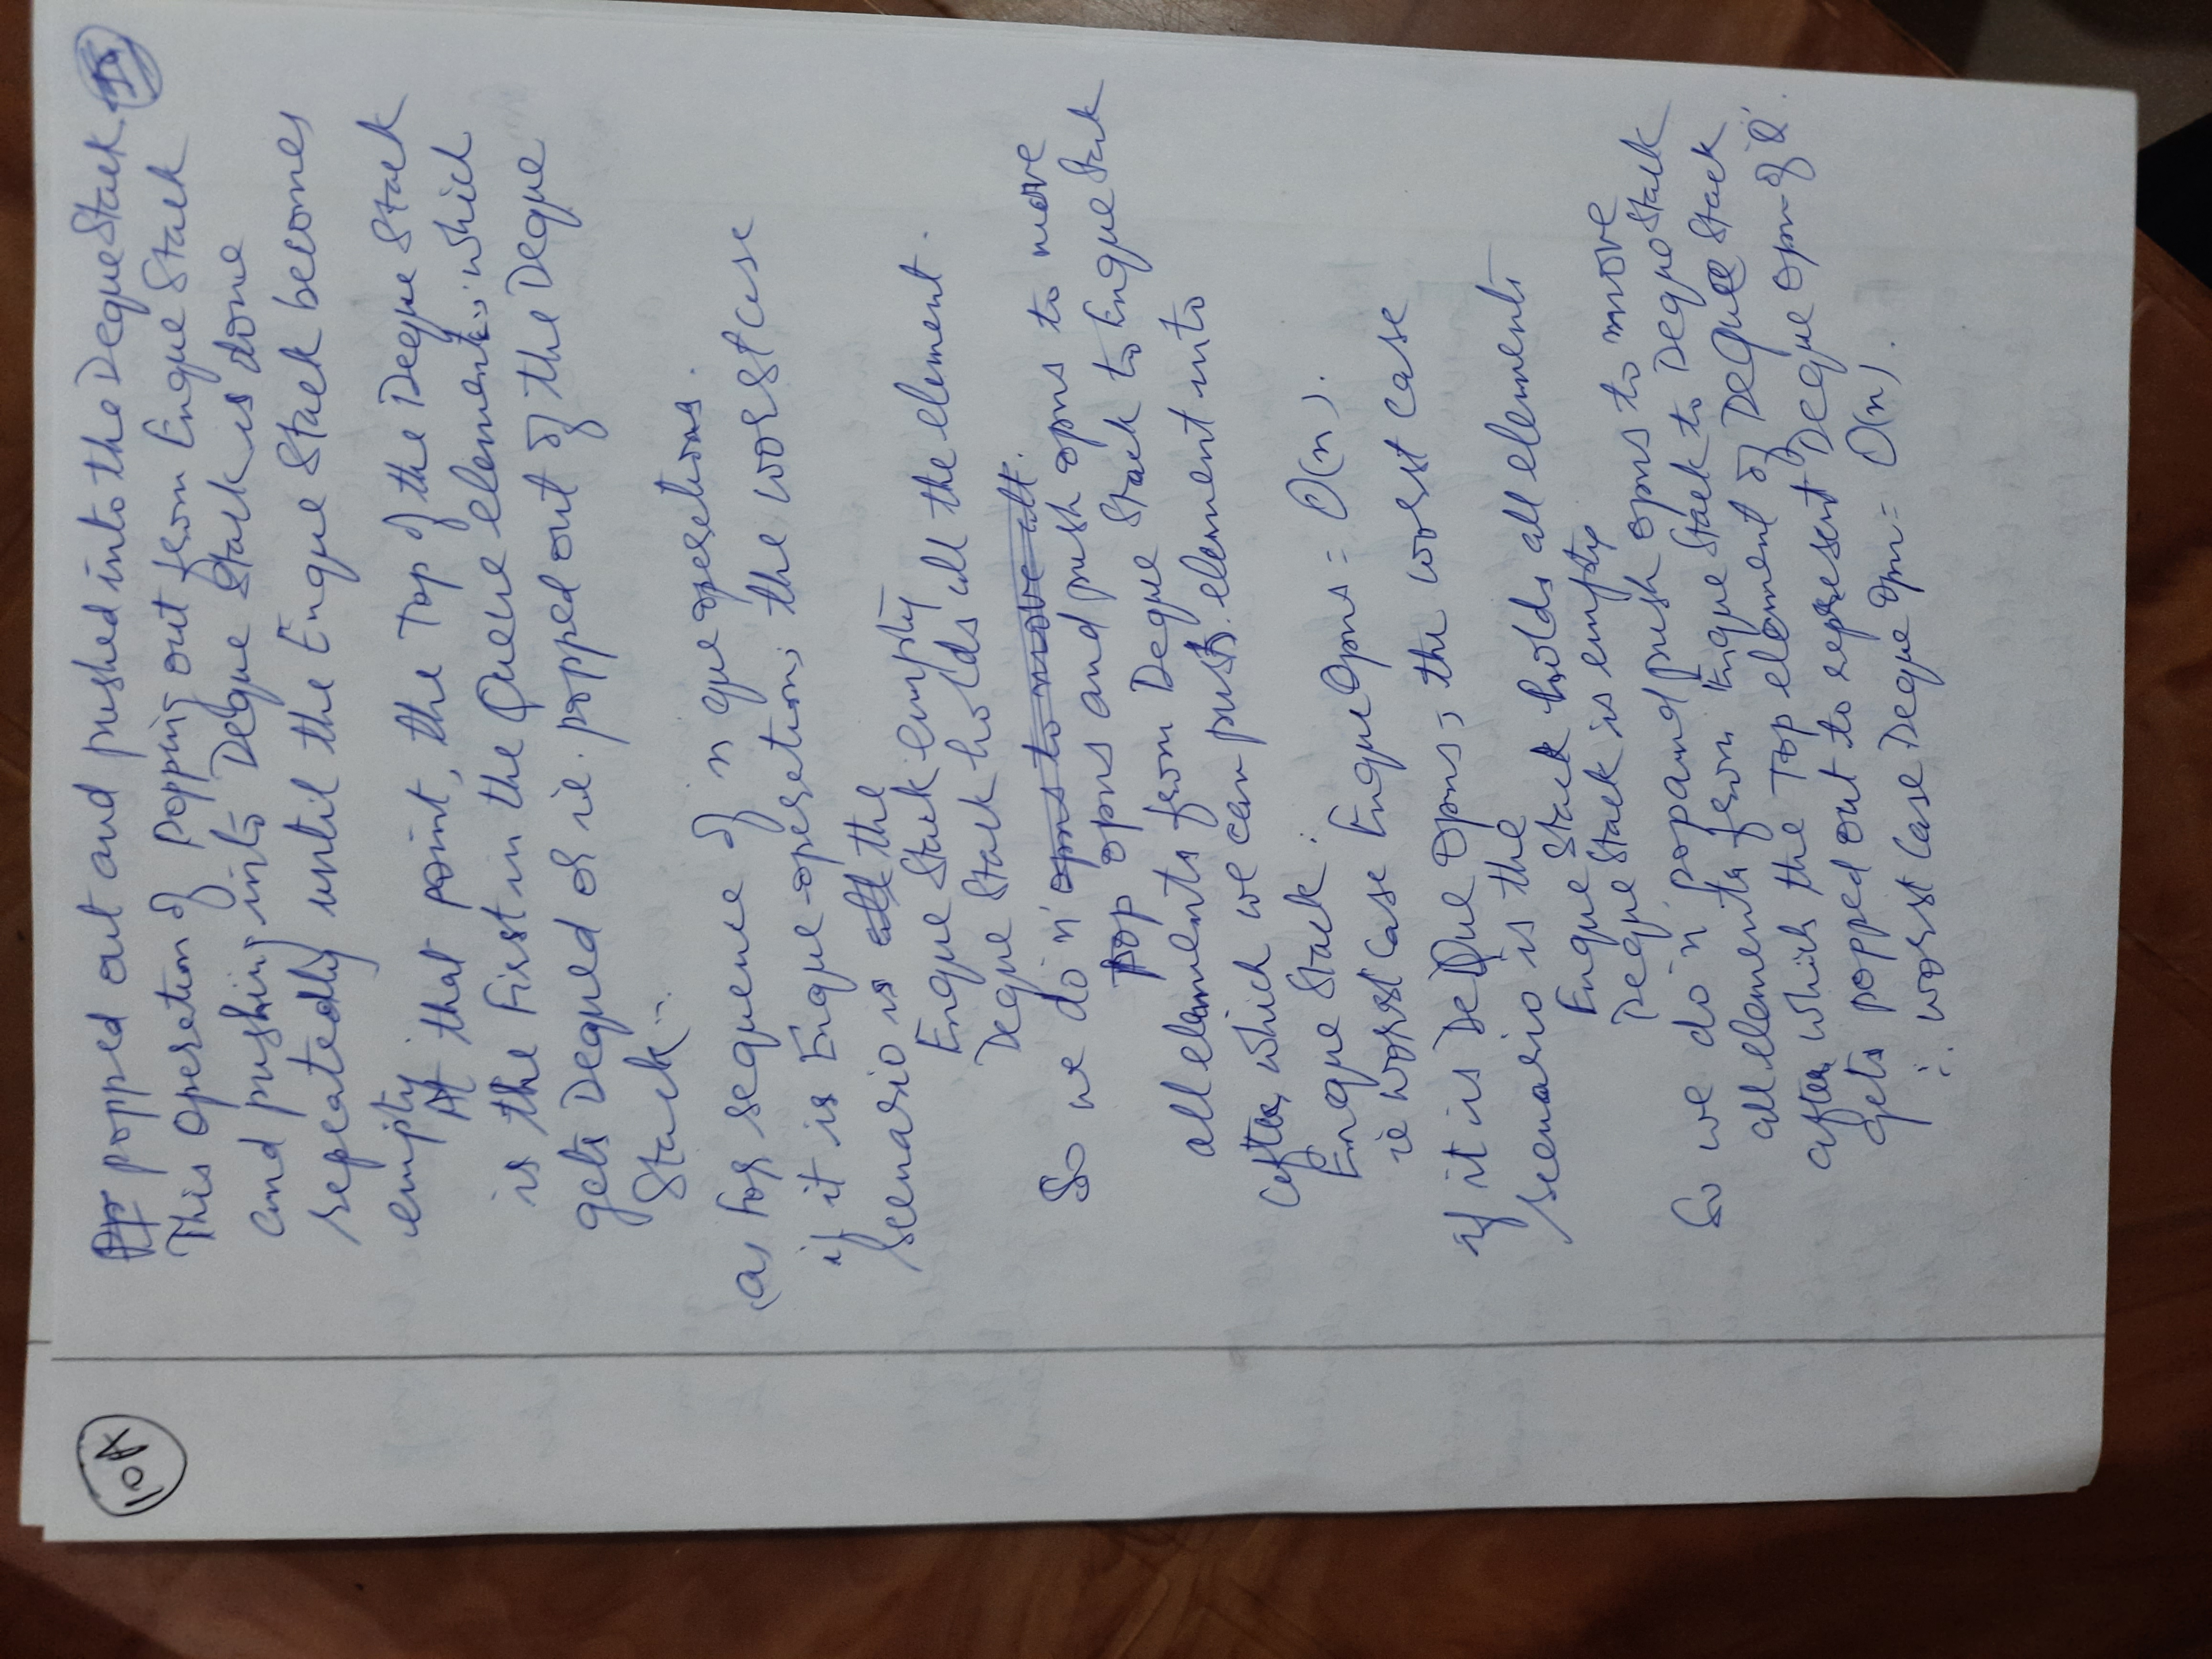 10A
popped out and pushed into the Deque Stack.
This operation of popping out from Enque Stack
and pushing into Deque Stack is done
repeatedly until the Enque Stack becomes
empty.
At that point, the Top of the Deque Stack
is the First in the Queue element, which
gets Dequed or ie. popped out of the Deque
Stack.
(a) For sequence of n que operations.
if it is Enque operation, the worst case
scenario is all the
Enque Stack empty
Deque Stack holds all the element.
So we do 'n' opns to move all.
pop opns and push opns to move
all elements from Deque Stack to Enque Stack
after which we can push element into
Enque Stack.
ie worst case Enque Opns = O(n).
if it is DeQue Opns, the worst case
scenario is the
Enque Stack holds all elements
Deque Stack is empty
So we do 'n' pop and push opns to move
all elements from Enque Stack to Deque Stack
after which the Top element of Deque Stack
gets popped out to represent Deque opn of 'Q'.
∴ worst Case Deque Opn = O(n).